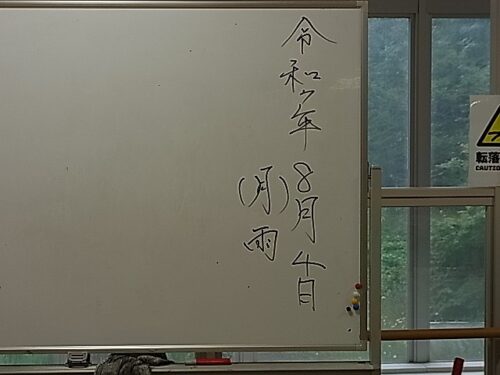 令和7年 8月 4日
(月) 雨
転落
CAUTION